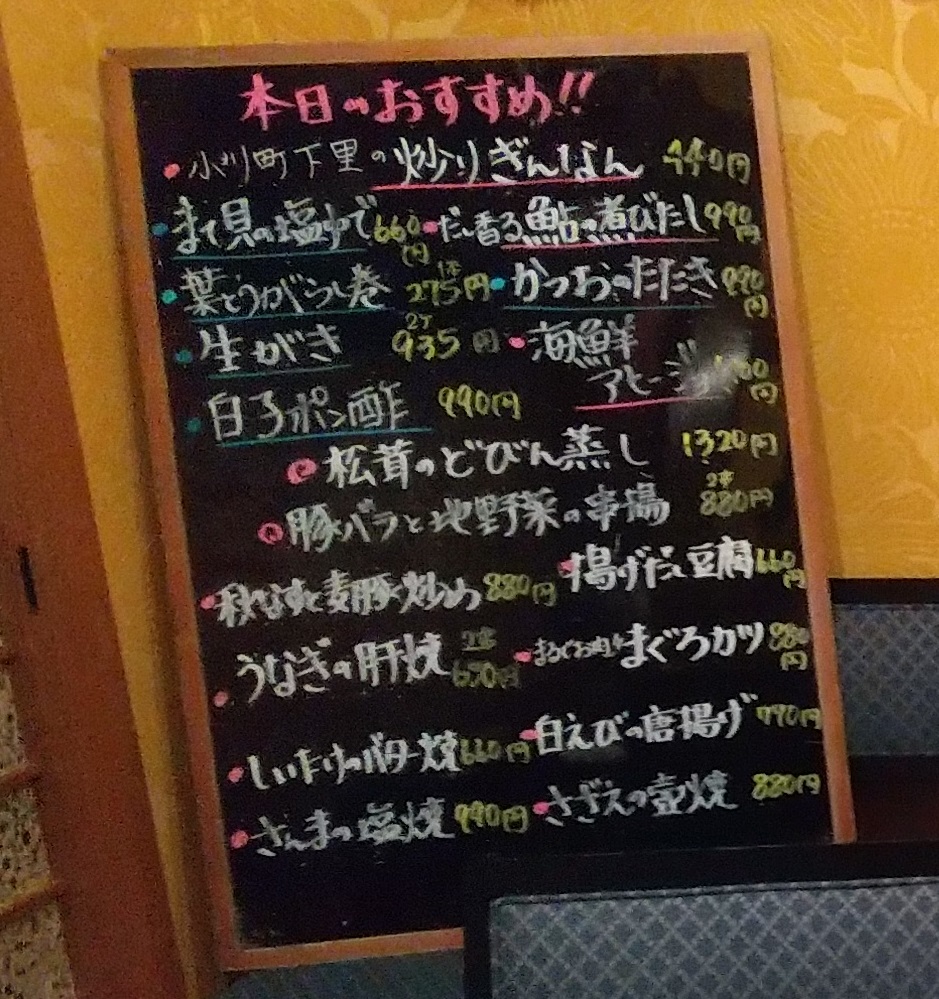 本日のおすすめ!!
小川町下里の炒りぎんなん 440円
まて貝の塩ゆで 660円 だし香る鮎の煮びたし 990円
葉とうがらし巻 1本 275円 かつおのたたき 990円
生がき 2ケ 935円 海鮮
アヒージョ 円
白子ポン酢 990円
松茸のどびん蒸し 1320円
豚バラと地野菜の串揚 2本 880円
秋なすと麦豚の炒め 880円 揚げだし豆腐 660円
うなぎの肝焼 2本 円 まぐろカツ 880円
しいたけのバター焼 660円 白えびの唐揚げ 770円
さんまの塩焼 990円 さざえの壺焼 880円